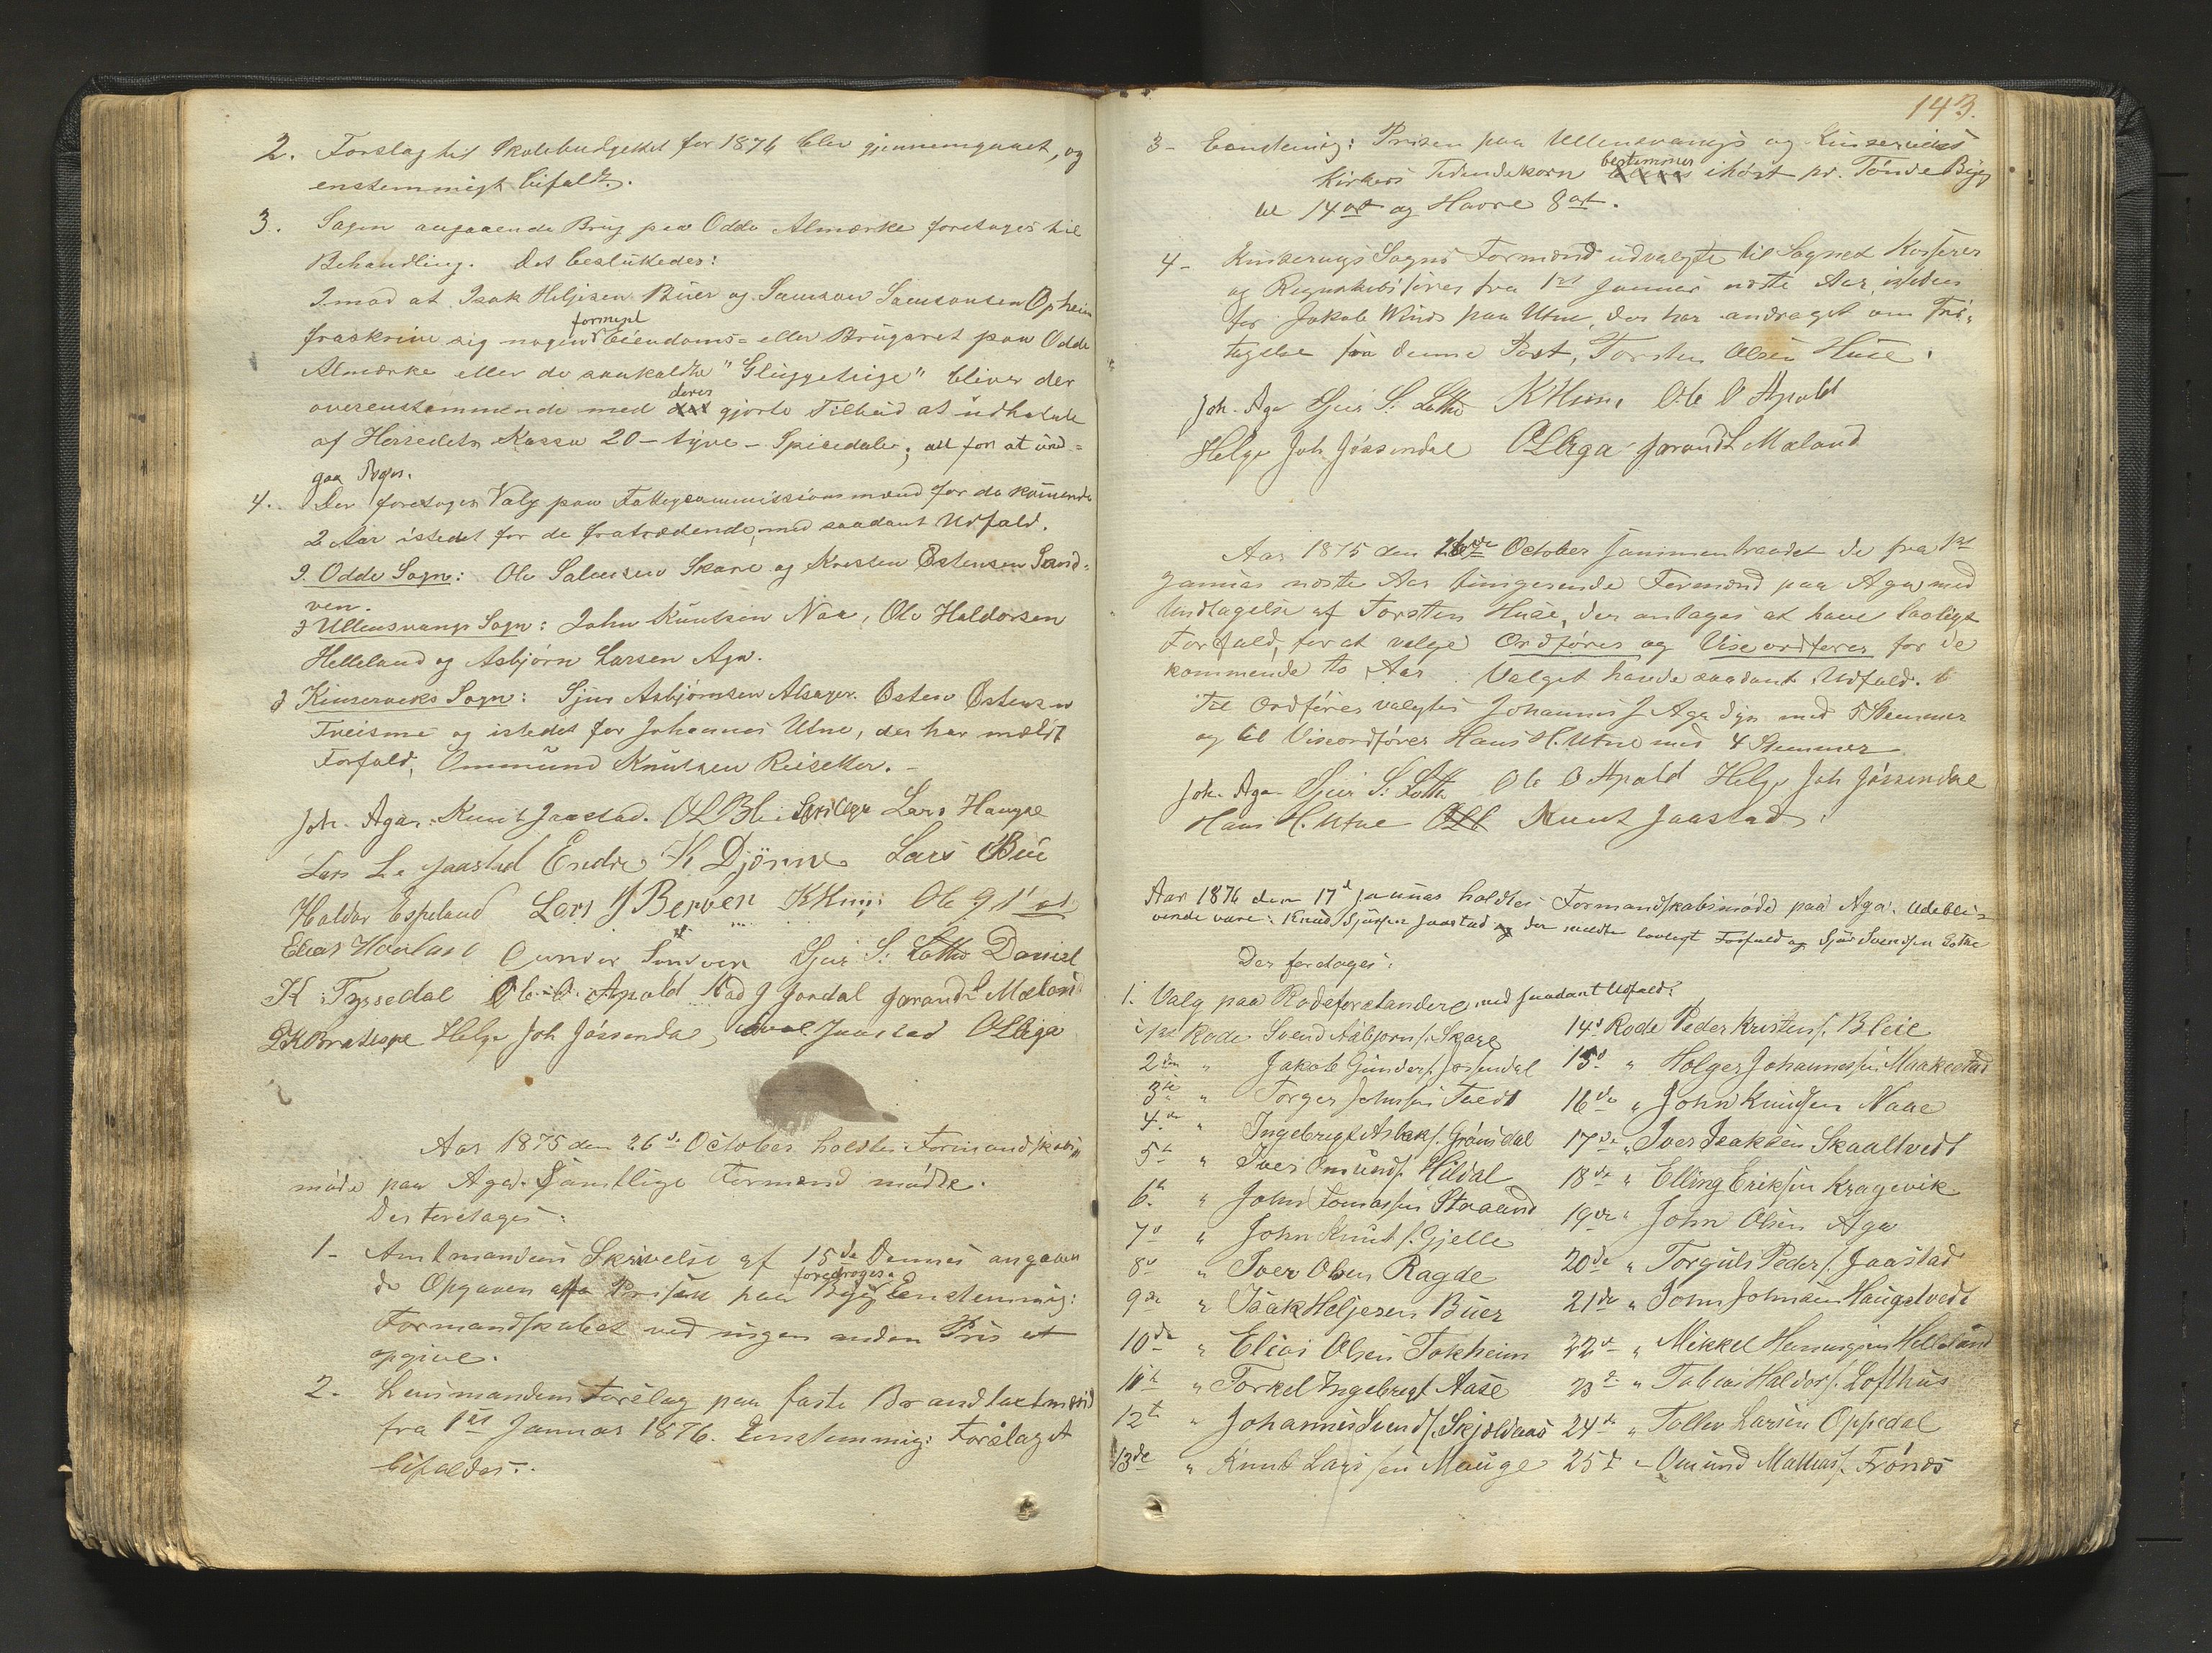 2. Forslag til Skolebudgettet for 1876 blev gjennemgaaet, og
enstemmigt bifaldt.
3. Sagen angaaende Brug paa Odde Almærke foretages til
Behandling. Det beslutedes:
Imod at Isak Heljesen Buer og Samson Samsonsen Opheim
fraskrive sig nogen formént Eiendoms- eller Brugsret paa Odde
Almærke eller de saakaldte "Gluggeteige" bliver der
overensstemmende med deres gjorte Tilbud at udbetale
af Herredets Kassa 20 - tyve - Spisedaler; alt for at und-
gaa Proces.
4. Der foretoges Valg paa Fattigcommissionsmænd for de kommende
2 Aar istedet for de fratrædende, med saadant Udfald.
I. Odde Sogn: Ole Salmsen Skare og Kresten Østensen Sand-
ven.
I Ullensvangs Sogn: John Knutsen Naa, Ole Haldorsen
Helleland og Asbjørn Larsen Aga.
I Kinserviks Sogn: Sjur Asbjørnsen Alsager. Østen Østensen
Treisme og istedet for Johannes Utne, der har meldt
Forfald, Ommund Knutsen Reisetter. -
Joh. Aga. Knut Jaastad. OL Blie Lars Haugse
Lars L. Jaastad Endre K Djönne Lars Bue
Haldor Espeland Lars J Berven K Huus Ole
Elias Hovland Gunder Sandven Sjur S: Lothe Daniel
H Tyssedal Ole O. Apold J Jordal Jørand L Mæland
Helge Joh Jössendal Jaastad OLAga
Aar 1875 den 26de October holdtes Formandskabs
møde paa Aga. Samtlige Formænd mødte.
Der foretoges:
1- Amtmandens Skrivelse af 15de Dennes angaaen
de Opgaven af Prisen paa Byg foredroges. Enstemmig:
Formandskabet ved ingen anden Pris at
opgive.
2. Lensmandens Forslag paa faste Brandtaxtmænd
fra 1ste Januar 1876. Enstemmig: Forslaget
bifaldes.
143.
3- Enstemig: Prisen paa Ullensvangs og Kinserviks
Kirkers Tiendekorn bestemmes ihøst pr. Tønde Byg
til 14 ort og Havre 8 ort.
4- Kinservigs Sogns Formænd udvalgte til Sognets Kasserer
og Regnskabsfører fra 1ste Januar næste Aar, isteden
for Jakob Winds paa Utne, der har andraget om Fri-
tagelse fra denne Post, Torsten Olsen Huse.
Joh. Aga Sjur S. Lothe K Huus Ole O Apold
Helge Joh Jössendal OLAga Jørand L Mæland
Aar 1875 den 26de October sammentraadte de fra 1ste
Januar næste Aar fungerende Formænd paa Aga, med
Undtagelse af Torsten Huse, der antages at have lovligt
Forfald, for at vælge Ordfører og Viseordfører for de
kommende to Aar. Valget havde saadant Udfald.
Til Ordfører valgtes Johannes J Aga dgn med 5 Stemmer
og til Viseordfører Hans H. Utne med 4 Stemmer
Joh. Aga Sjur S: Lothe Ole O Apold Helge Joh Jössendal
Hans H. Utne Knut Jaastad.
Aar 1876 den 17d Januar holdtes Formandskabsmøde paa Aga. Udebli-
vende vare: Knud Sjursen Jaastad og der meldte lovligt Forfald og Sjur Svendsen Lothe
Der foretoges:
1. Valg paa Rodeforstandere, med saadant Udfald:
1ste Rode Svend Asbjørns. Skare
2den " Jakob Gunders. Jøssendal
3die " Torger Johnsen Tvedt
4de " Ingebregt Aslaks. Grønsdal
5te " Iver Omunds. Hildal
6te " John Tomassen Straand
7de " John Knuts. Gjelle
8de " Iver Olsen Ragde
9de " Isak Heljesen Buer
10de " Elias Olsen Tokheim
11te " Torkel Ingebregts. Aase
12te " Johannes Svends. Skjeldaas
13de " Knut Larssen Mauge
14d Rode Peder Kristens. Bleie
15d " Holger Johannessen Maakestad
16de " John Knudsen Naae
17de " Iver Isaksen Skaaltvedt
18de " Elling Eriksen Kragevik
19de " John Olsen Aga
20de " Torguls Peders. Jaastad
21de " John Johnsen Haugstvedt
22de " Mikkel Henningsen Helleland
23de " Tobias Haldors. Lofthus
24de " Tollev Larsen Oppedal
25de - Omund Mathias. Frönæs